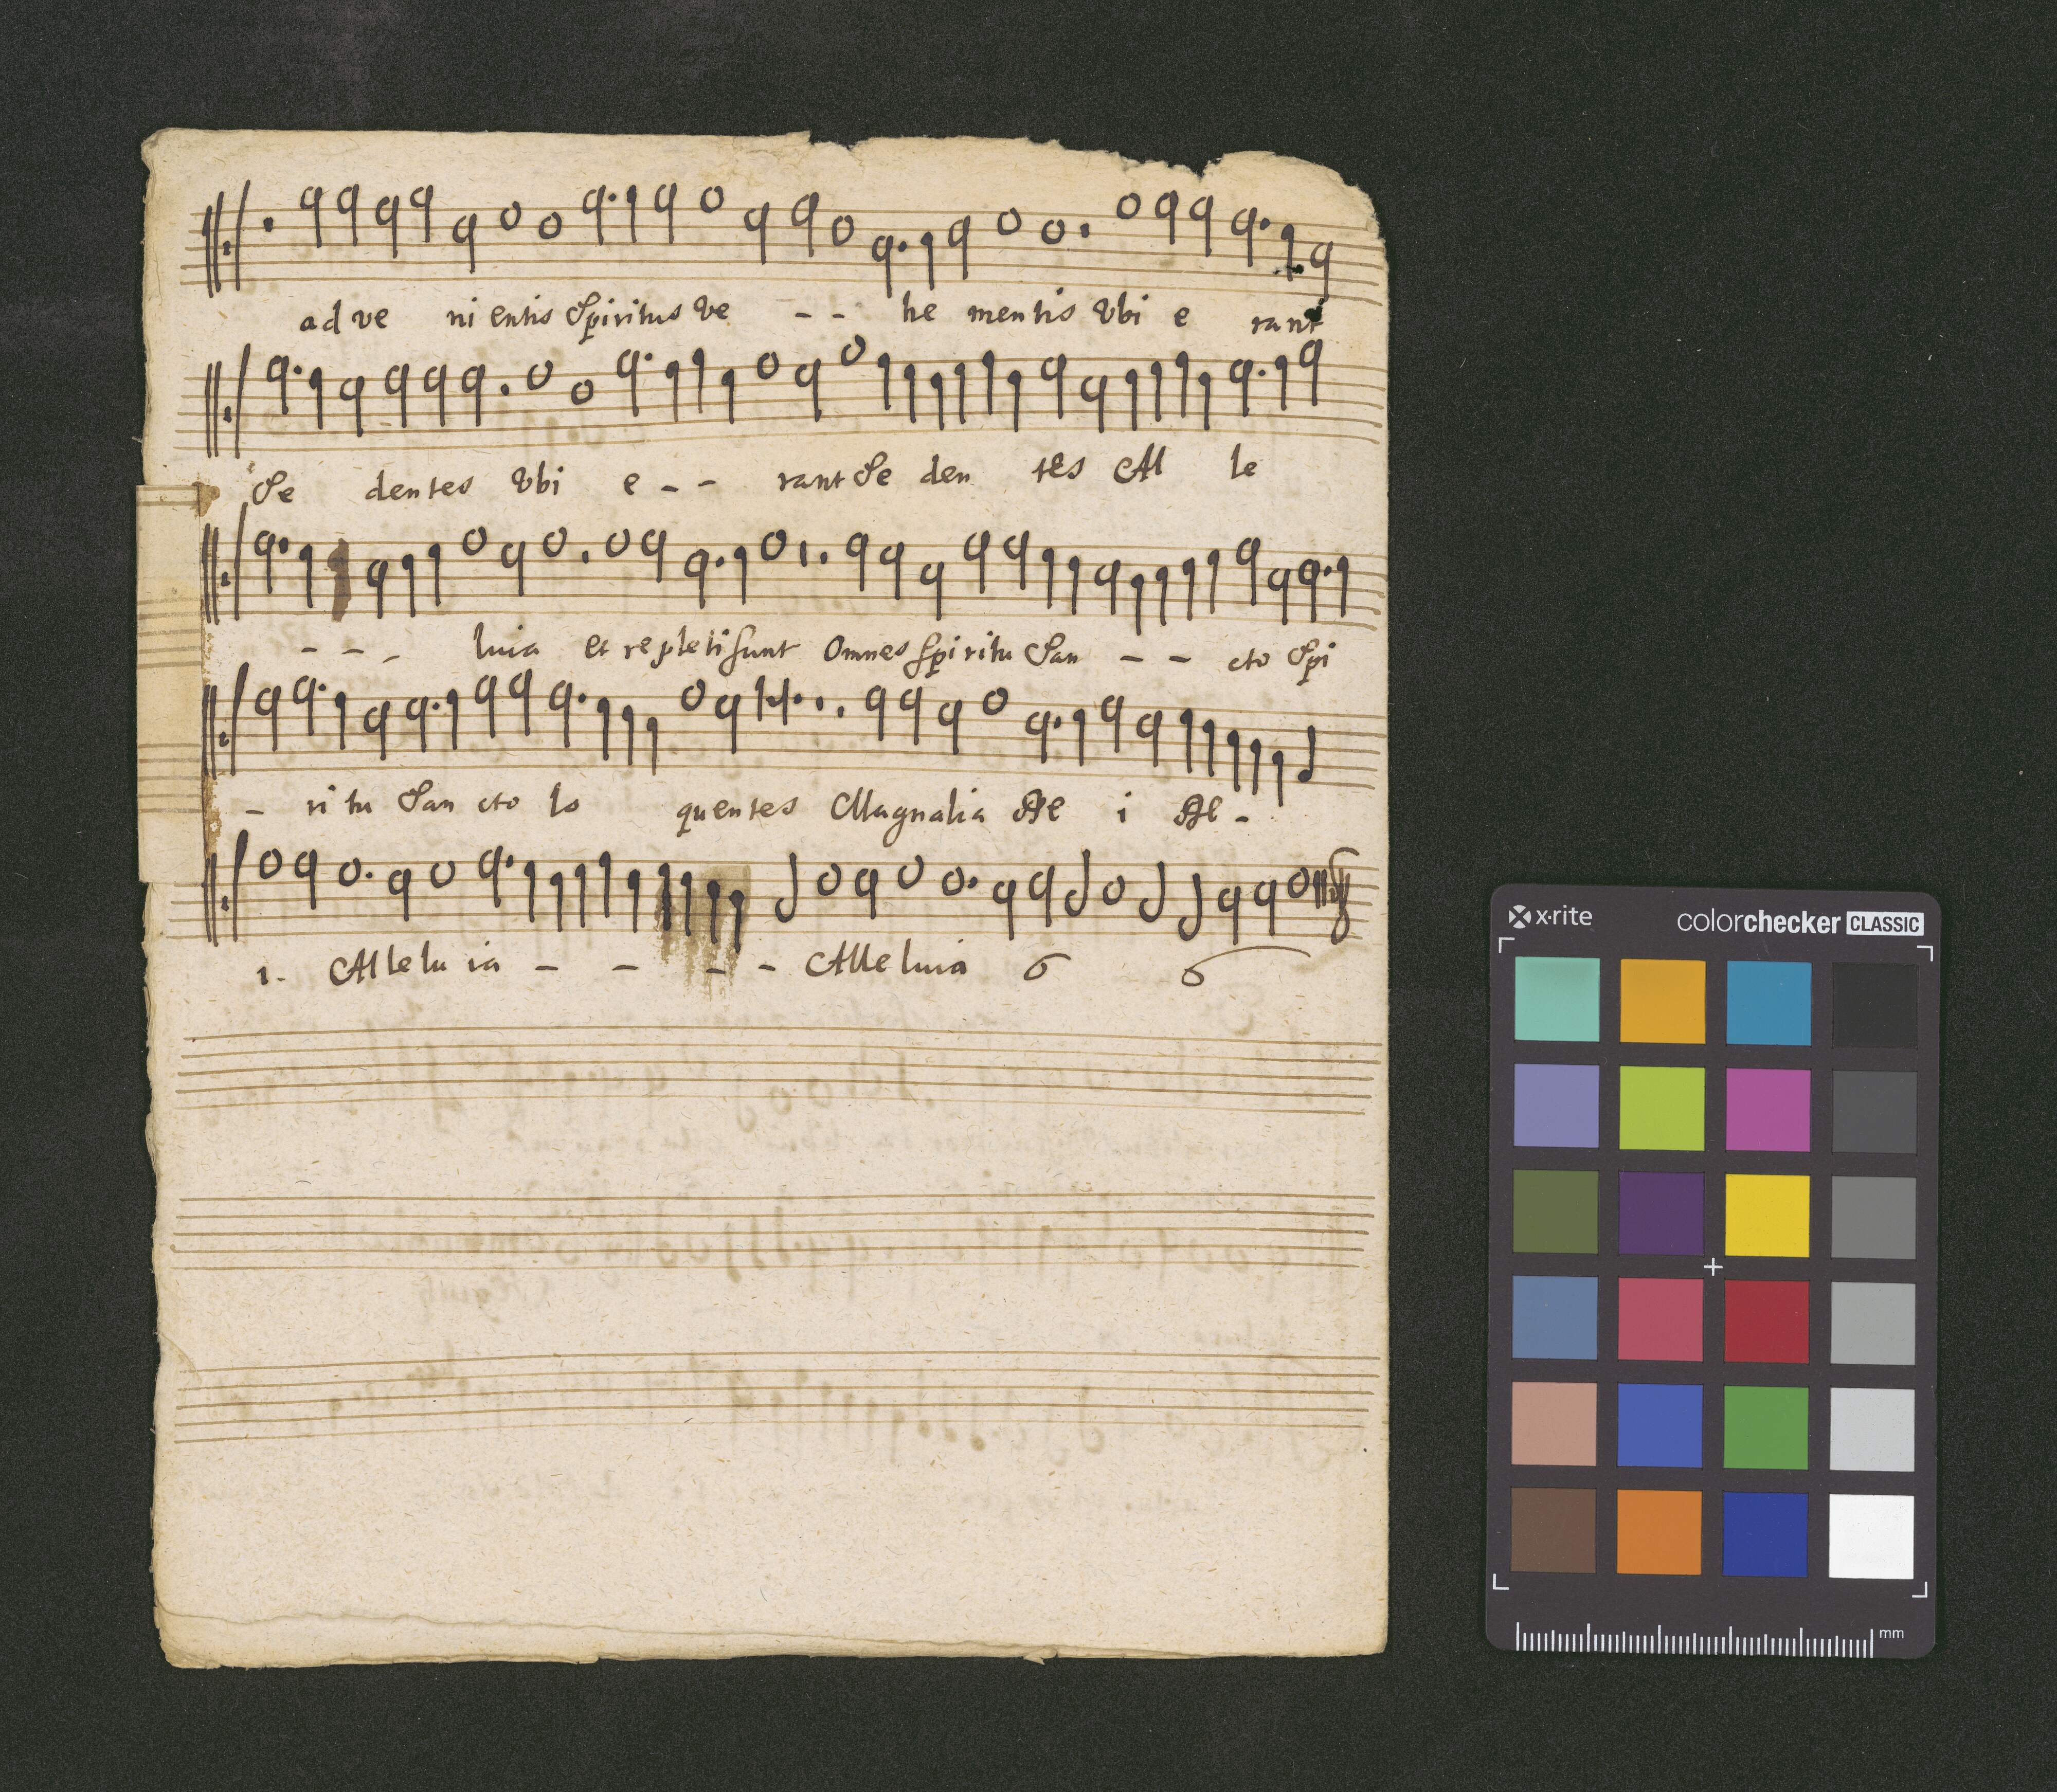 ad ve ni entis Spiritus ve - - he mentis Vbi e rant
Se dentes Vbi e - - rant Se den tes Al le
- - - luia et repleti sunt Omnes spiritu San - - cto Spi
- ri tu San cto lo quentes Magnalia De i De -
i. Allelu ia - - - - Alleluia
x-rite colorchecker CLASSIC
mm